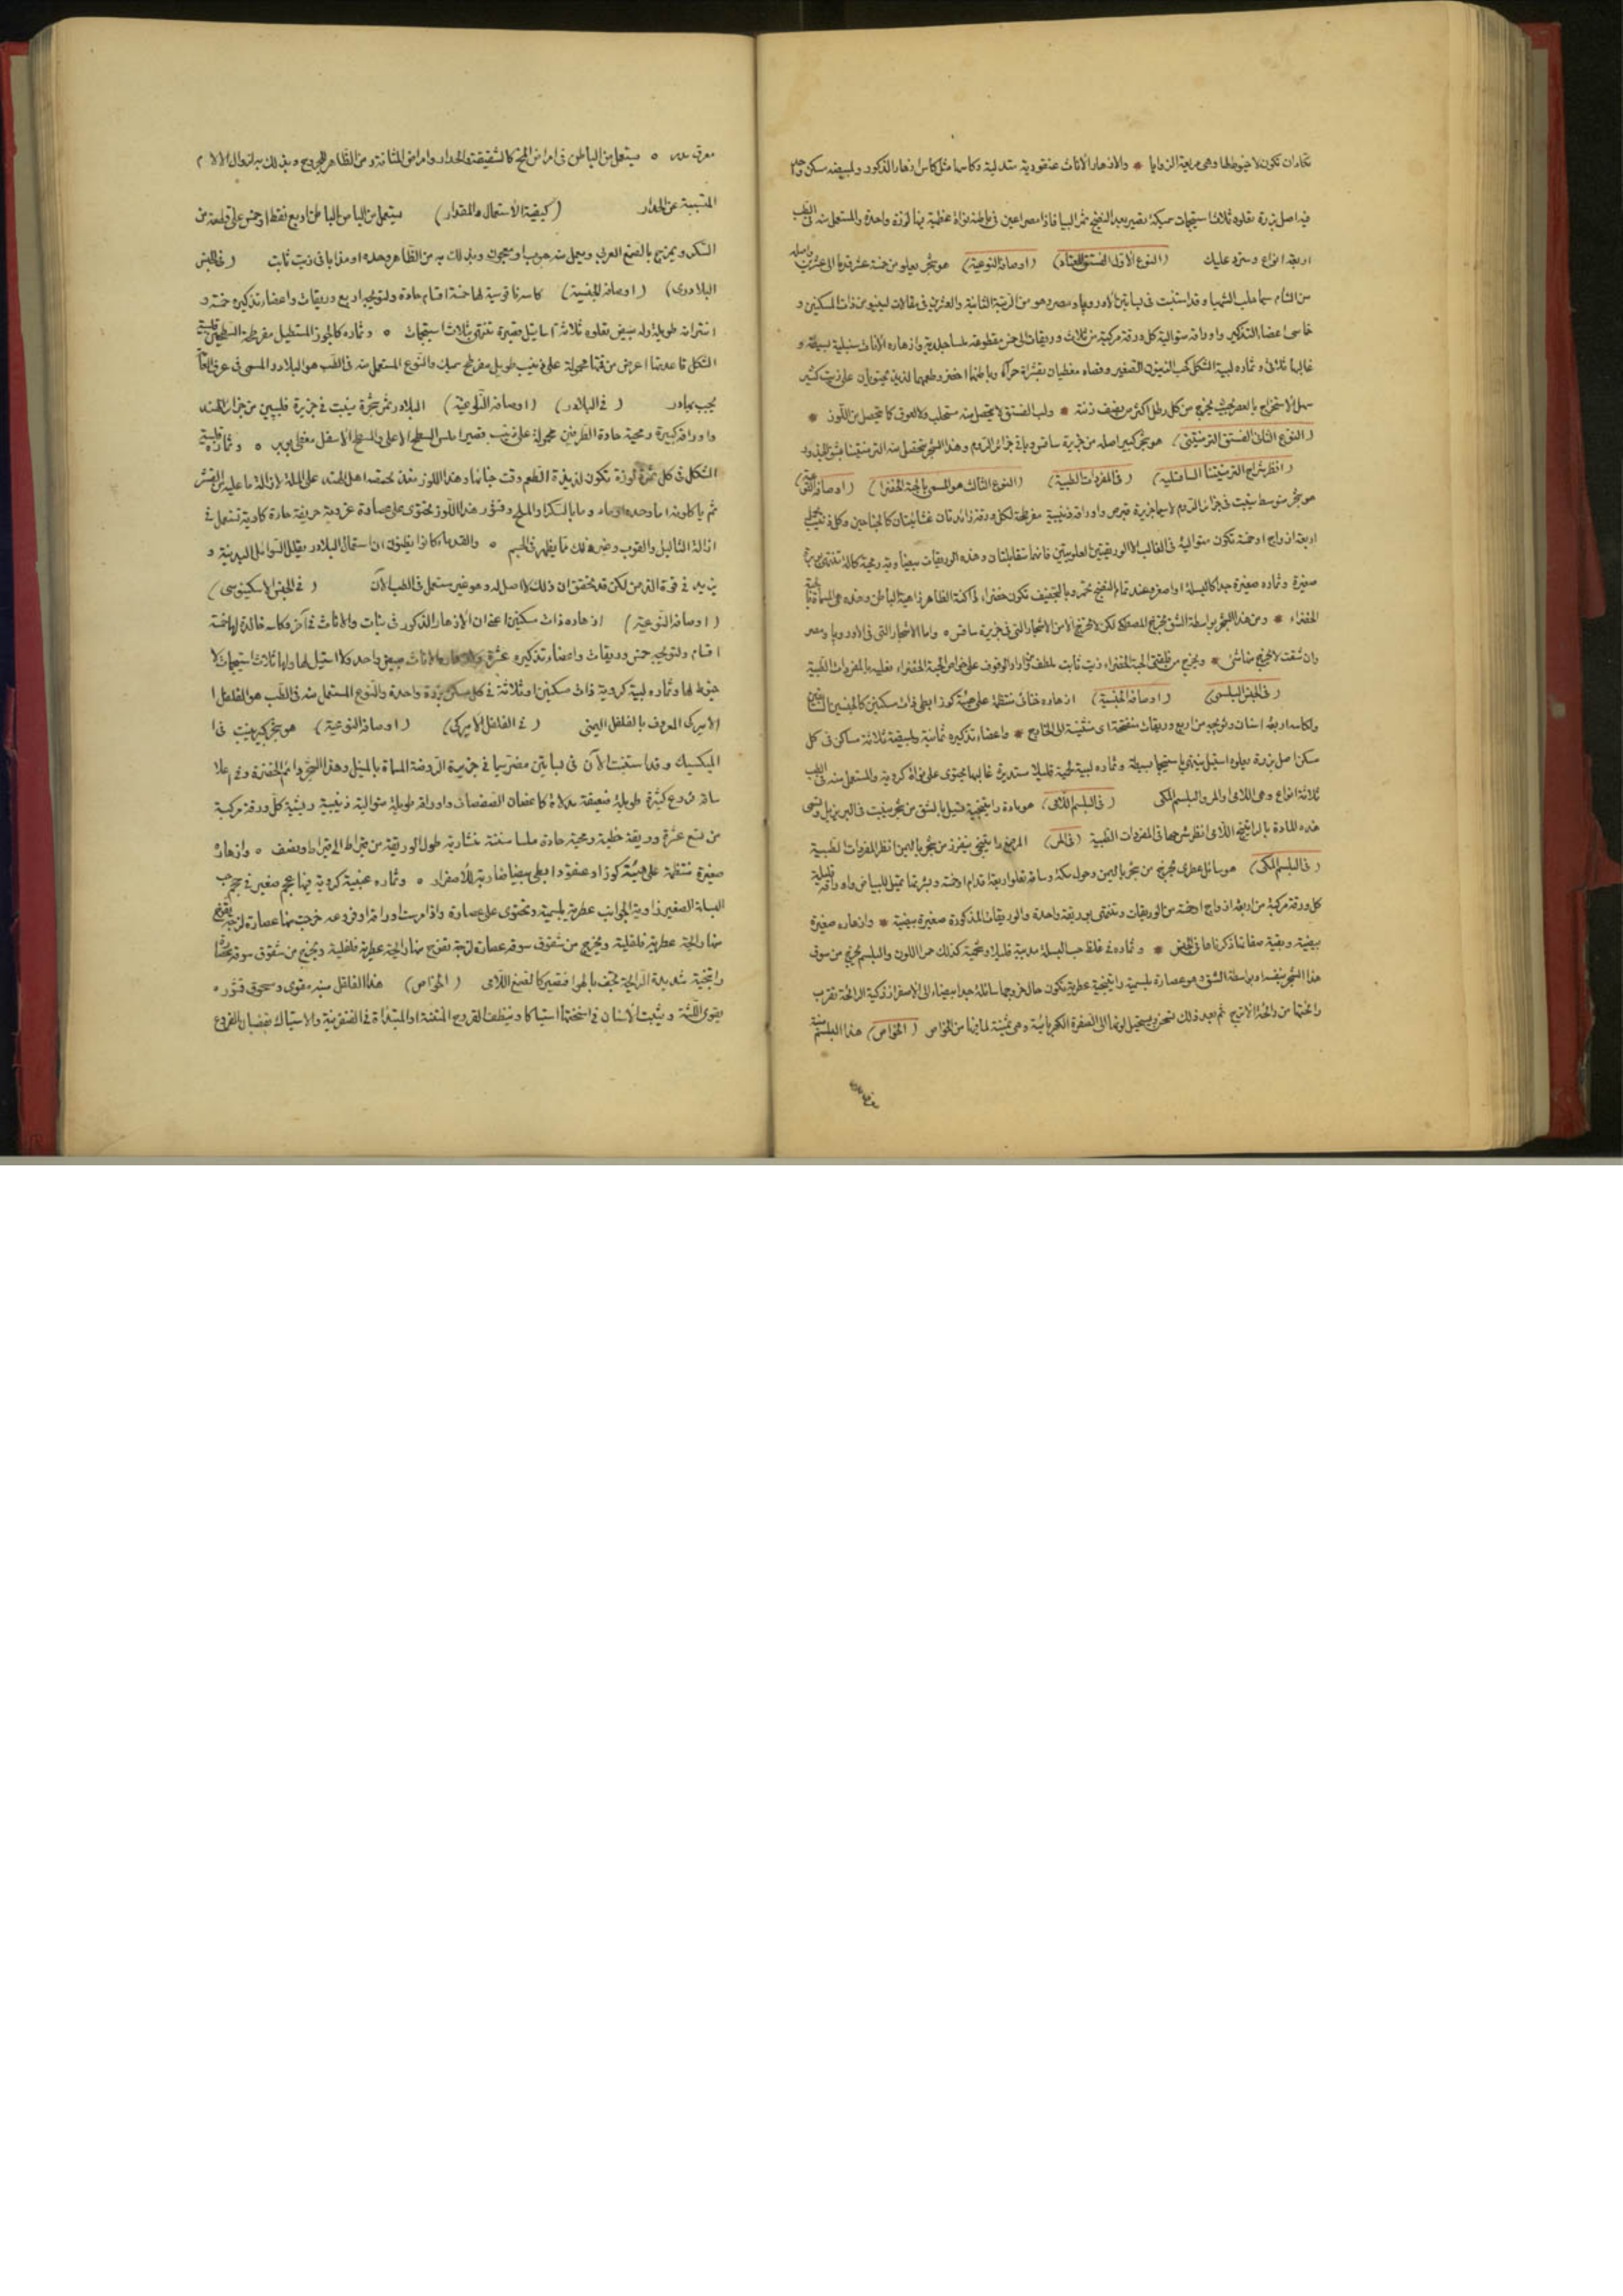 تكاد ان تكون لا خيوط لها وهي مربعة الزوايا * والازهار الاناث عنقودية متدلية وكاسها مثل كاس ازهار الذكور ولمبيضه مسكن واحد
فيه اصل بزرة يعلوه ثلاث استيجمات سميكة يصير بعد النضج ثمر البيا فاذا مصراعين في باطنه نواة عظمية بها لوزة واحدة والمستعمل منه في الطب
اربعة انواع وسترد عليك (النوع الاول الفستق المعتاد) (اوصافه النوعية) هو شجر يعلو من خمسة عشر قدما الى عشرين واصله
من الشام سيما حلب الشهبا وقد استنبت في بساتين الاوروبا ومصر وهو من الرتبة الثانية والعشرين في مقالات لينيو من ذات المسكنين و
خماسي اعضا التذكير واوراقه متوالية كل ورقة مركبة من ثلاث وريقات الى خمس مقطوعة ملسا جلدية وازهاره الاناث سنبلية بسيطة و
غالبها ثلاثي وثماره لبية الشكل كحب الزيتون الصغير وفصاه مغطيان بقشراة حمراء وباطنها اخضر وطعمها لذيذ محتويان على زيت كثير
سهل الاستخراج بالعصر بحيث يخرج من كل رطل اكثر من نصف زنته * ولب الفستق لا يتحصل منه مستحلب ولا لعوق كما يتحصل من اللوز *
(النوع الثاني الفستق الترمنتيني) هو شجر كبير اصله من جزيرة ساقس وباقي جزائر الروم وهذا الشجر يتحصل منه الترمنتينا بشق الجذور
(انظر شراح الترمنتينا الساقسلية) (في المفردات الطبية) (النوع الثالث هو المسمى بالحبة الخضرا) (اوصافه النوعية)
هو شجر متوسط ينبت في جزائر الروم لا سيما جزيرة قبرص واوراقه ذنيبية مفرطحة لكل ورقة زائدتان غشائيتان كالجناحين وكل ذنيب يحمل
اربعة ازواج او خمسة تكون متوالية في الغالب الا الوريقتين العلويتين فانهما متقابلتان وهذه الوريقات بيضاوية رمحية كالة تنتهي بوبرة
صغيرة وثماره صغيرة جدا كالبسلة او اصغر وعند تمام النضج تحمر وبالتجفيف تكون خضراء داكنة الظاهر ذاهبية الباطن وهذه هي المسماة بالحبة
الخضراء * ومن هذا الشجر بواسطة الشق تخرج المصطكى لكن لا تخرج الا من الاشجار التي في جزيرة ساقس * واما الاشجار التي في الاوروبا ومصر
وان شقت لا يخرج منها شئ * ويخرج من فلقتي الحبة الخضراء زيت ثابت لطيف فمن اراد الوقوف على خواص الحبة الخضراء فعليه بالمفردات الطبية
(في الجنس البلسمي) (اوصافه الجنسية) ازهاره خناثى منتظمة على هيئة كوز ابطي ذات مسكنين كالجنسين السابقين
ولكاسه اربعة اسنان وتويجه من اربع وريقات منفتحة اى منثنية الى الخارج * واعضاء تذكيره ثمانية ولمبيضه ثلاثة مساكن في كل
مسكن اصل بزرة يعلوه استيل ينتهي باستيجما بسيطة وثماره لبية لحمية قليلا مستديرة غالبها يحتوى على نواة كروية والمستعمل منه في الطب
ثلاثة انواع وهي اللامي والمر والبلسم المكي (في البلسم اللامي) هو مادة راتينجية تسيل بالشق من شجر ينبت في البريزيل وتسمى
هذه المادة بالراتينج اللامي انظر شرحها في المفردات الطبية (في المر) المر صمغ راتينجي يتفرز من شجر باليمن انظر المفردات الطبية
(في البلسم المكي) هو سائل عطرى يخرج من شجر باليمن وحول مكة وساقه تعلو اربعة اقدام او خمسة وبشرتها تميل للبياض واوراقه قليلة
كل ورقة مركبة من اربعة ازواج او خمسة من الوريقات وتنتهي بوريقة واحدة والوريقات المذكورة صغيرة بيضية * وازهاره صغيرة
بيضية وبقية صفاتها ذكرناها في الجنس * وثماره في غلظ حب البسلة مدببة قليلا ولحمية كذلك حمر اللون والبلسم يخرج من سوق
هذا الشجر بنفسه او بواسطة الشق وهو عصارة بلسمية راتينجية عطرية تكون حال خروجها سائلة جدا بيضاء الى الاصفرار ذكية الرائحة تقرب
رائحتها من رائحة الاترج ثم بعد ذلك تسخن ويستحيل لونها الى الصفرة الكهربائية وهي ثمينة لما فيها من الخواص (الخواص) هذا البلسم منبه
معرق مدر * يستعمل من الباطن في امراض المخ كالشقيقة والخدار وامراض المثانة ومن الظاهر للجروح وبذلك به لزوال الالام
المتسببة عن الخدار (كيفية الاستعمال والمقدار) يستعمل من الباطن اربع نقط او خمس على قطعة من
السكر ويمزج بالصمغ العربي ويعمل منه حبوبا او معجون وبذلك به من الظاهر وحده او مذابا في زيت ثابت (في الجنس
البلادرى) (اوصافه الجنسية) كاسه ناقوسية لها خمسة اقسام حادة ولتويجه اربع وريقات واعضاء تذكيره خمسة و
اشرانه طويلة وله مبيض يعلوه ثلاثة استيل قصيرة تنتهي بثلاث استيجمات * وثماره كالجوز المستطيل مفرطحة السطحين قلبية
الشكل قاعدتها اعرض من قمتها محمولة على ذنيب طويل مفرطح سميك والنوع المستعمل منه في الطب هو البلادر المسمى في عرف العامة
بحب بهادر (في البلادر) (اوصافه النوعية) البلادر ثمر شجرة ينبت في جزيرة فليبين من جزائر الهند
واوراقه كبيرة رمحية حادة الطرفين محمولة على ذنيب قصير املس السطح الاعلى والسطح الاسفل مغطى بوبر * وثماره قلبية
الشكل في كل ثمرة لوزة تكون لذيذة الطعم وقت جنائها وهذا اللوز بعد تحميصه اهل الهند على الملة لازالة ما عليه من القشر
ثم ياكلونه اما وحده او ماد وما بالسكر او الملح وقشور هذا اللوز تحتوى على مادة عروية حريفة حارة كاوية تستعمل في
ازالة الثاليل والقوب وغير ذلك مما يظهر في الجسم * والقدماء كانوا يظنون ان استعمال البلادر يقلل السوائل البدنية و
يزيد في قوة الذهن لكن قد تحقق ان ذلك لا اصل له وهو غير مستعمل في الطب الآن (في الجنس الاسكينوسي)
(اوصافه النوعية) ازهاره ذات مسكنين اعني ان الازهار الذكور في نبات والاناث في آخر وكاسه خالدة لها خمسة
اقسام ولتويجه خمس وريقات واعضاء تذكيره عشرة والازهار الاناث مبيض واحد ولا استيل لها ولها ثلاث استيجمات لا
خيوط لها وثماره لبية كروية ذات مسكنين او ثلاثة في كل مسكن بزرة واحدة والنوع المستعمل منه في الطب هو الفلفل ا
الاميركي المعروف بالفلفل اليمني (في الفلفل الاميركي) (اوصافه النوعية) هو شجر كبير ينبت في ا
الميكسيك وقد استنبت الآن في بساتين مصر سيما في جزيرة الروضة المسماة بالمنيل وهذا الشجر دائم الخضرة وفي اعلا
ساقه فروع كثيرة طويلة ضعيفة مدلاة كاغصان الصفصاف واوراقه طويلة متوالية ذنيبية ريشية كل ورقة مركبة
من تسع عشرة وريقة خطية رمحية حادة ملسا مسننة منشارية طول الوريقة من قيراط الى قيراط ونصف * وازهاره
صغيرة منتظمة على هيئة كوز او عنقود ابطي بيضا ضاربة للاصفرار * وثماره عنبية كروية فيها عجم صغير في حجم حب
البسلة الصغير زاوية الجوانب عطرية بلسمية وتحتوى على عصارة واذا مرست اوراقه او فروعه خرجت منها عصارة لزجة يفوح
منها رائحة عطرية فلفلية ويخرج من شقوق سوقه عصارة لزجة تفوح منها رائحة عطرية فلفلية ويخرج من شقوق سوقه ايضا
راتنجية شديدة الرائحة تجف بالهوا فتصير كالصمغ اللامي (الخواص) هذا الفلفل منبه مقوى ومسحوق قشوره
يقوى اللثة ويثبت الاسنان في اسنختها استياكا وينظف القروح المنتنة او المبتدأة في الغنغرينة والاستياك بقضبان الفروع